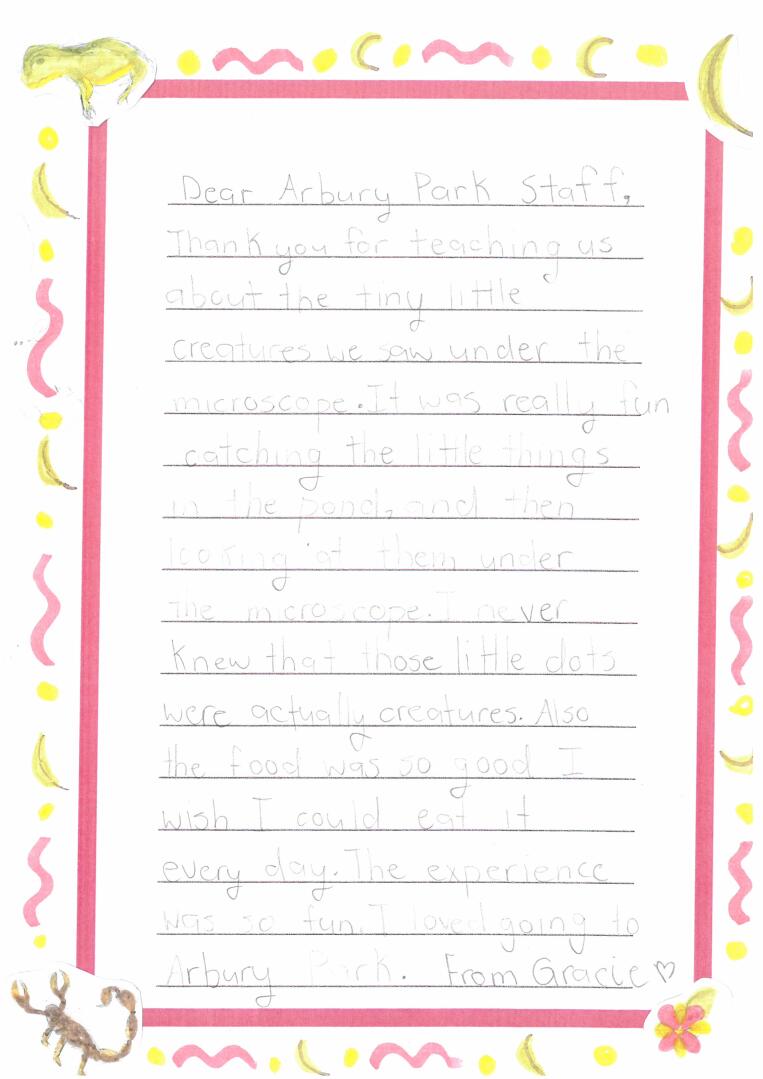 Dear Arbury Park Staff,
Thank you for teaching us
about the tiny little
creatures we saw under the
microscope. It was really fun
catching the little things
in the pond, and then
looking at them under
the microscope. I never
knew that those little dots
were actually creatures. Also
the food was so good I
wish I could eat it
every day. The experience
was so fun. I loved going to
Arbury Park. From Gracie♡